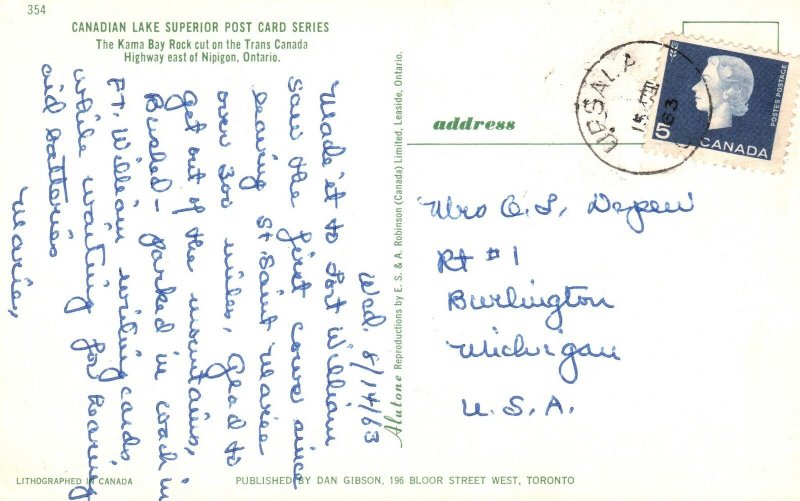 354
CANADIAN LAKE SUPERIOR POST CARD SERIES
The Kama Bay Rock cut on the Trans Canada
Highway east of Nipigon, Ontario.
Wed. 8/14/63
Made it to Fort William
saw the first cows since
leaving St. Saint Marie
over 300 miles, Glad to
get out of the mountains,
Bushed - parked in coach in
Ft. William writing cards
while waiting for hearing
aid batteries
Marie,
Alutone Reproductions by E. S. & A. Robinson (Canada) Limited, Leaside, Ontario.
address
UPSALA
15 VIII
63
5
CANADA
POSTES POSTAGE
Mrs O. L. Depew
Rt #1
Burlington
Michigan
U. S. A.
LITHOGRAPHED IN CANADA
PUBLISHED BY DAN GIBSON, 196 BLOOR STREET WEST, TORONTO